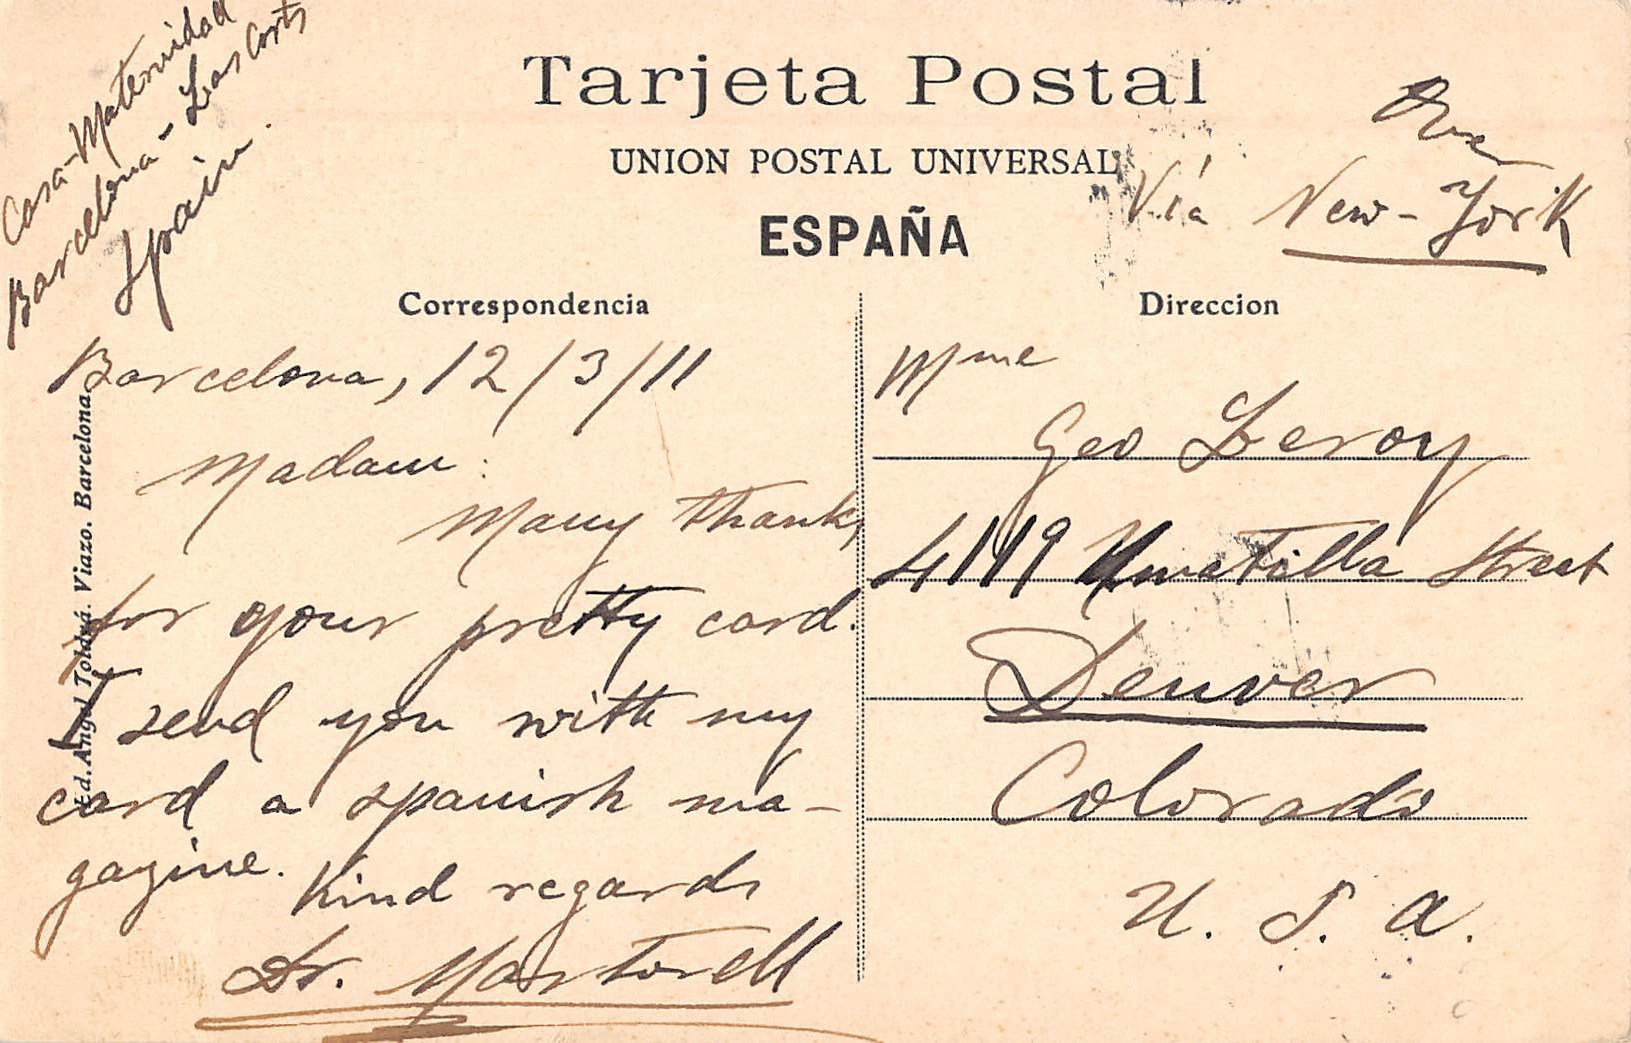 Casa-Maternidad
Barcelona - Las Corts
Spain.
Tarjeta Postal
UNION POSTAL UNIVERSAL
ESPAÑA
Vía New-York
Correspondencia
Direccion
Barcelona, 12/3/11
Madam:
Many thanks
for your pretty card.
I send you with my
card a spanish ma-
gazine. Kind regards
Dr. Martorell
Ed. Angel Toldrá. Viazo. Barcelona
Mme
Geo Leroy
4119 Umatilla Street
Denver
Colorado
U. S. A.